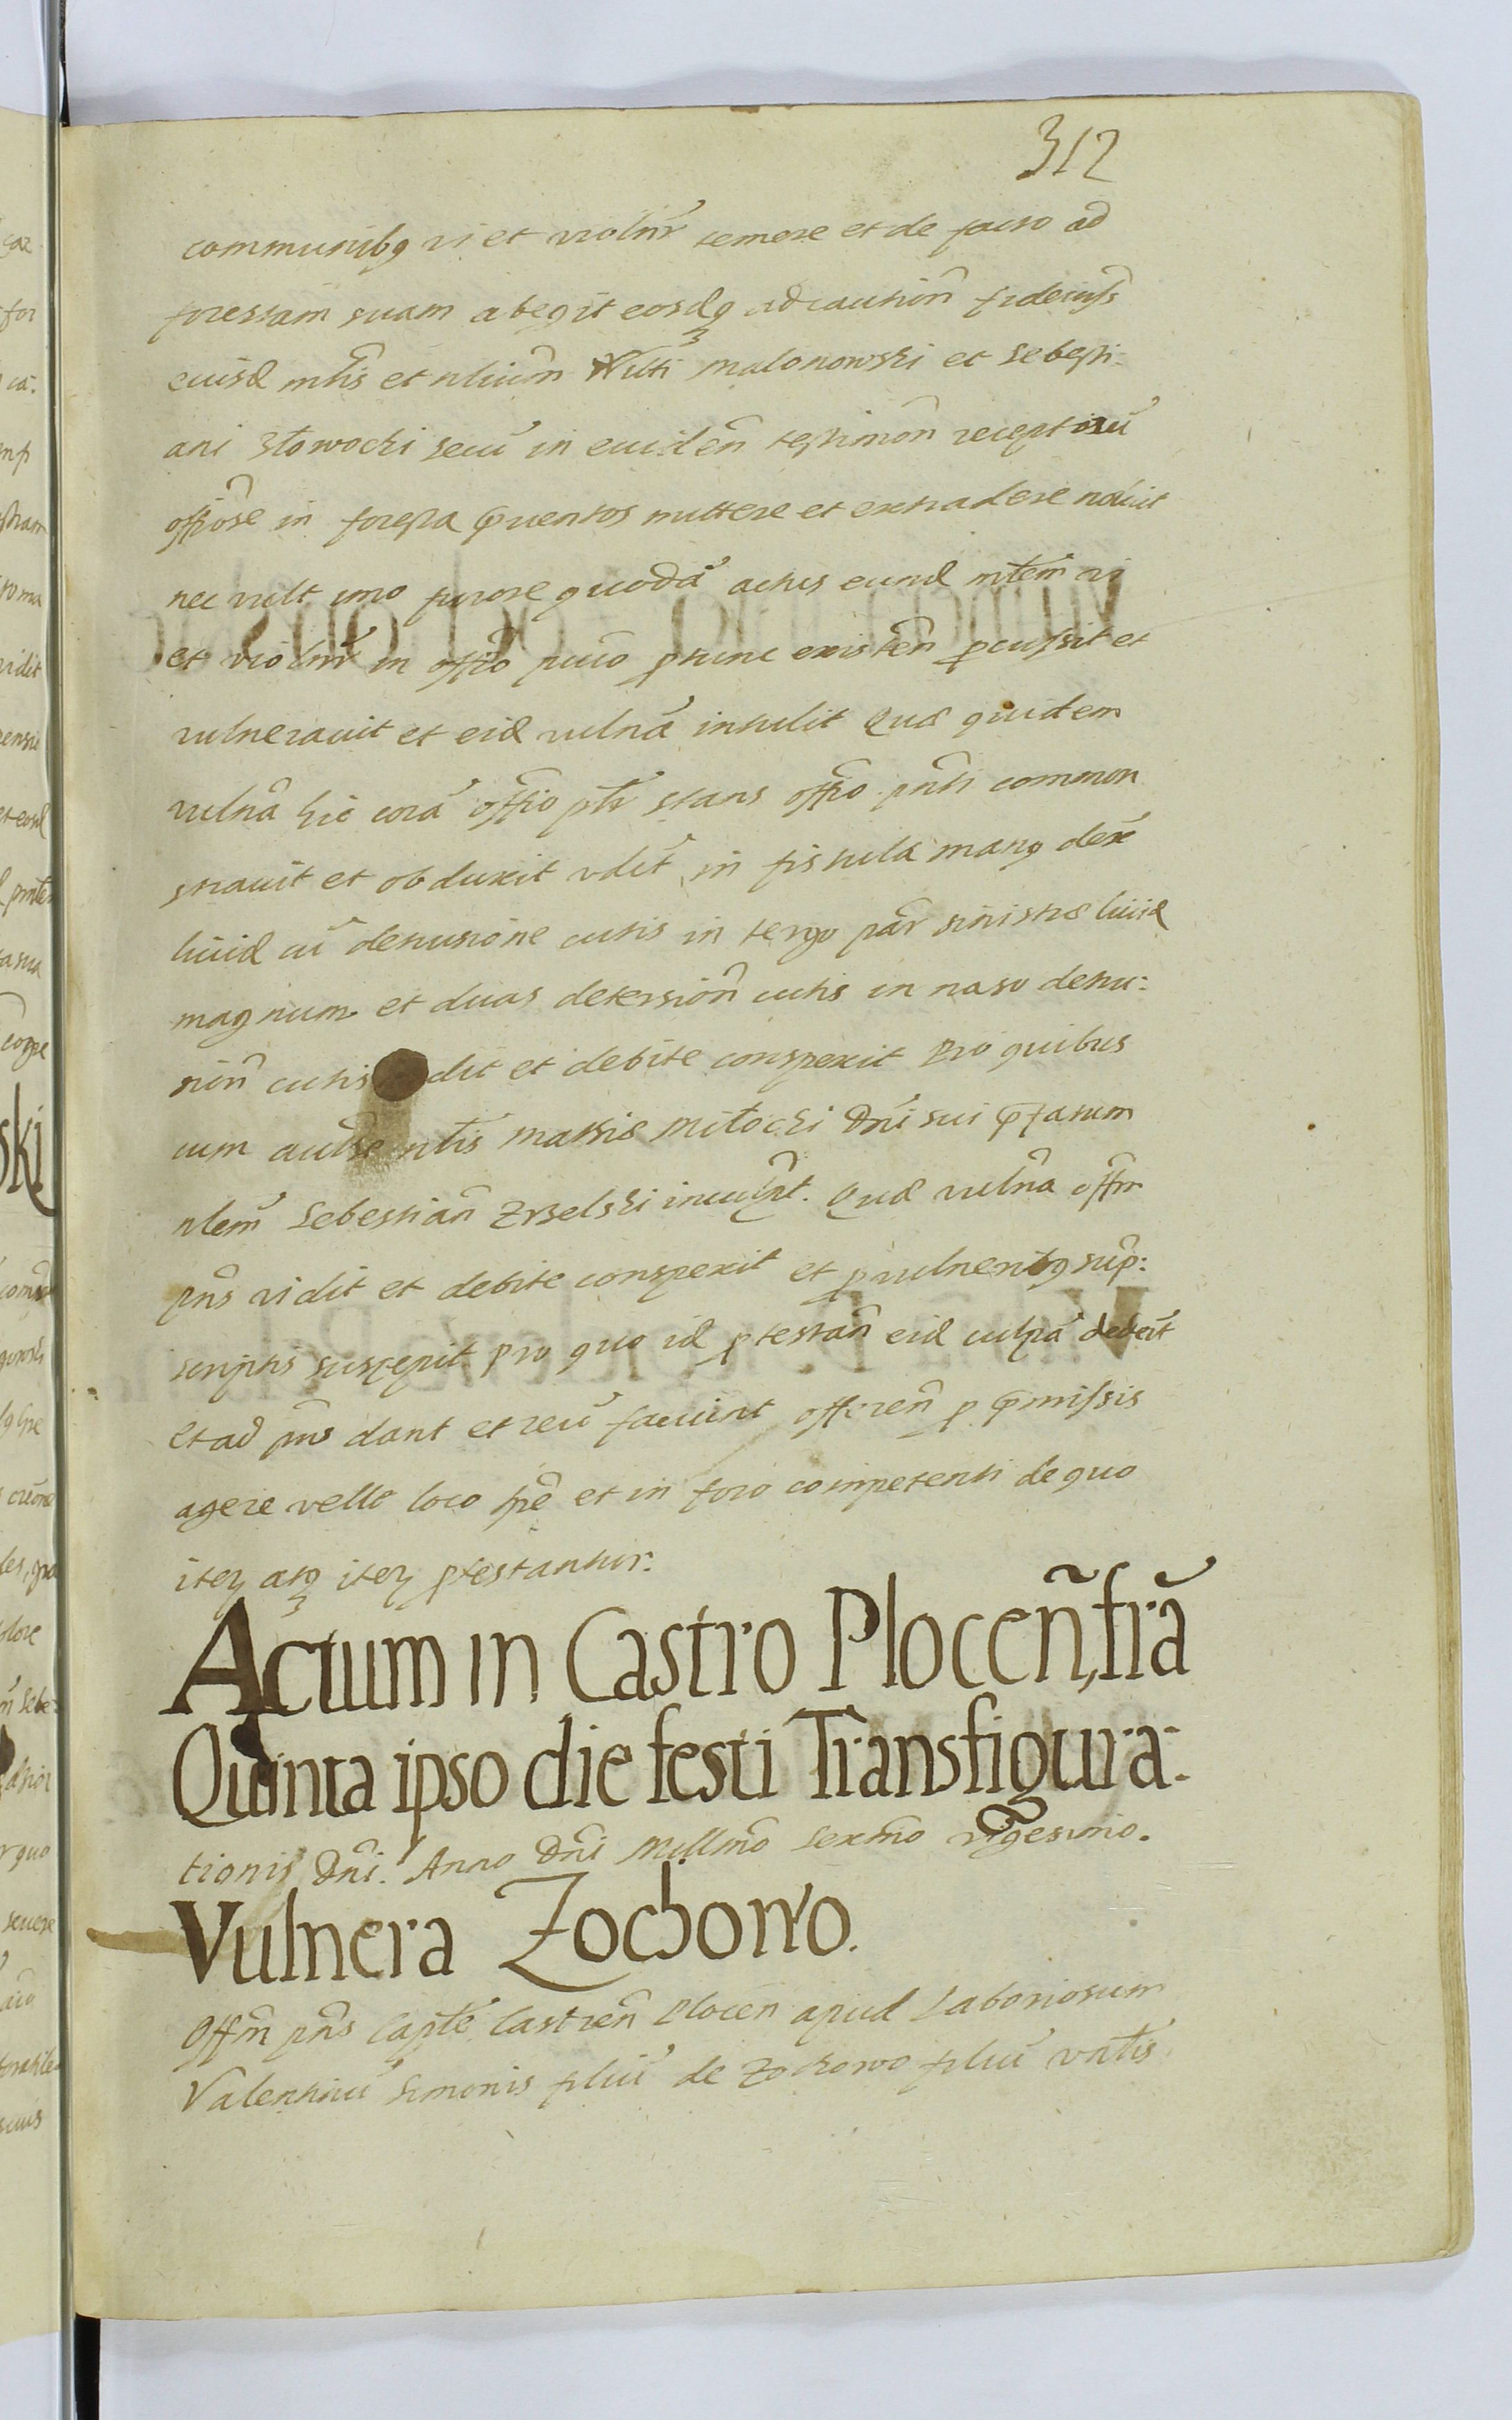 312
communibq vi et violnr̃ temere et de facto ad
forestam suam abegit eosdq ad caution̄ fideiuss̄
eiusd mtis et nlium̄ Nicti Malonowski et Sebesti-
ani Słowocki secū in euiden̄ testimon̄ receptorū
in foresta p̄uentos mittere et extradere noluit
nec vult imo furore quodā actus eund mtem̄ vi
et violnr̃ in offō ptunc existen̄ pcussit et
vulnerauit et eid vulnā intulit Quæ quidem
vulnā hic corā offīo ptr stans offīo pn̄ti common
strauit et obduxit vdlt̄ in fistula manq dex̄
liuid cū detrusione cutis in tergo par̄ sinistræ liuid
magnum et duas detersion̄ cutis in naso detru:
sion̄ cutis dit et debite conspexit Pro quibus
cum ntis Mathiæ Miłocki Dn̄i sui
nlem̄ Sebestian̄ Quæ vulnā offm̄
pn̄s vidit et debite conspexit et p vulneribq sup:
scriptis suscepit pro quo id ptestan̄ eid culpā dedert̄
et ad dant et reū faciunt offeren̄ p p̄missis
agere velle loco et in foro competenti de quo
iteʒ atq iteʒ ptestantur:
Actum in Castro Plocen̄, fr̄ā
Quinta ipso die festi Transfigura-
tionis Dn̄i. Anno Dn̄i Millmō Sexmō vigesimo.
Vulnera Zochowo.
Offm̄ pn̄s Captle Castren̄ Plocen apud Laboriosum
Valentinū Simonis filiū de Zochowo filiū